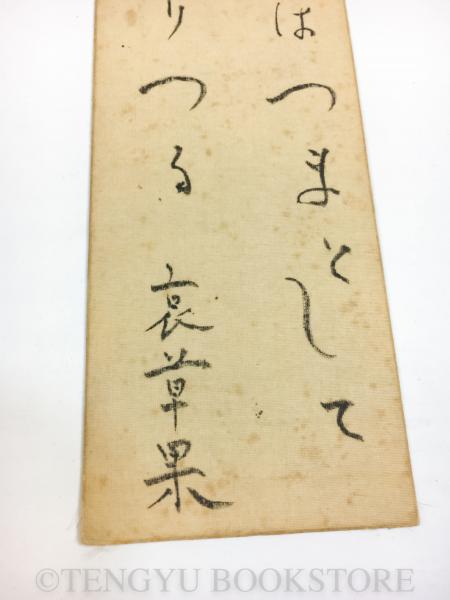 はつまとして
りつる 哀草果
©TENGYU BOOKSTORE